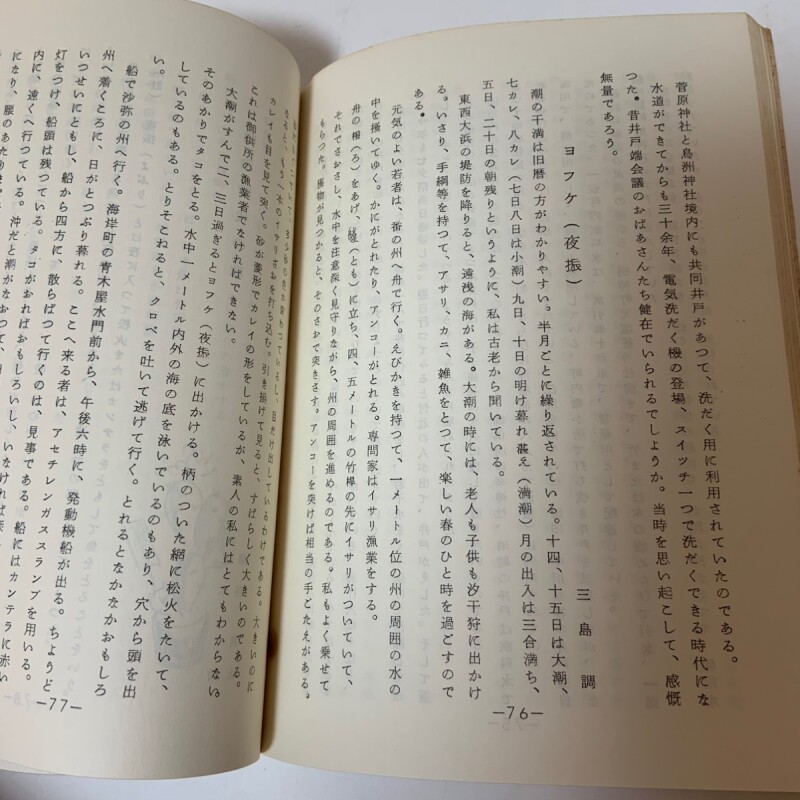 菅原神社と鳥洲神社境内にも共同井戸があつて、洗だく用に利用されていたのである。
水道ができてからも三十余年、電気洗だく機の登場、スイッチ一つで洗だくできる時代にな
つた。昔井戸端会議のおばあさんたち健在でいられるでしょうか。当時を思い起こして、感慨
無量であろう。
ヨフケ（夜振）
三島　調
潮の干満は旧暦の方がわかりやすい。半月ごとに繰り返されている。十四、十五日は大潮、
七カレ、八カレ（七日八日は小潮）九日、十日の明け暮れ湛え（満潮）月の出入は三合満ち、
五日、二十日の朝残りというように、私は古老から聞いている。
東西大浜の堤防を降りると、遠浅の海がある。大潮の時には、老人も子供も汐干狩に出かけ
る。いさり、手網等を持つて、アサリ、カニ、雑魚をとつて、楽しい春のひと時を過ごすので
ある。
元気のよい若者は、番の州へ舟で行く。えびかきを持つて、一メートル位の州の周囲の水の
中を掻いてゆく。かにがとれたり、アンコーがとれる。専門家はイサリ漁業をする。
舟の櫓（ろ）をあげ、艫（とも）に立ち、四、五メートルの竹棹の先にイサリがついていて、
それでさおさし、水中を注意深く見守りながら、州の周囲を進めるのである。私もよく乗せて
もらつた。獲物がみつかると、そのさおで突きさす。アンコーを突けば相当の手ごたえがある。
—76—
カレイも目を見て突く。砂が菱形でカレイの形をしているが、素人の私にはとてもわからない
これは御供所の漁業者でなければできない。
大潮がすんで二、三日過ぎるとヨフケ（夜振）に出かける。柄のついた網に松火をたいて、
そのあかりでタコをとる。水中一メートル内外の海の底を泳いでいるのもあり、穴から頭を出
しているのもある。とりそこねると、クロベを吐いて逃げて行く。とれるとなかなかおもしろ
い。
船で沙弥の州へ行く。海岸町の青木屋水門前から、午後六時に、発動機船が出る。ちょうど
州へ着くころに、日がとつぷり暮れる。ここへ来る者は、アセチレンガスランプを用いる。
いつせいにともし、船から四方に、散らばつて行くのは、見事である。船にはカンテラに赤い
灯をつけ、船頭は残つている。タコがおればおもしろいし、いなければ
内に、遠くへ行つている。沖だと潮がなおつて、
になり、腰のあた
—77—